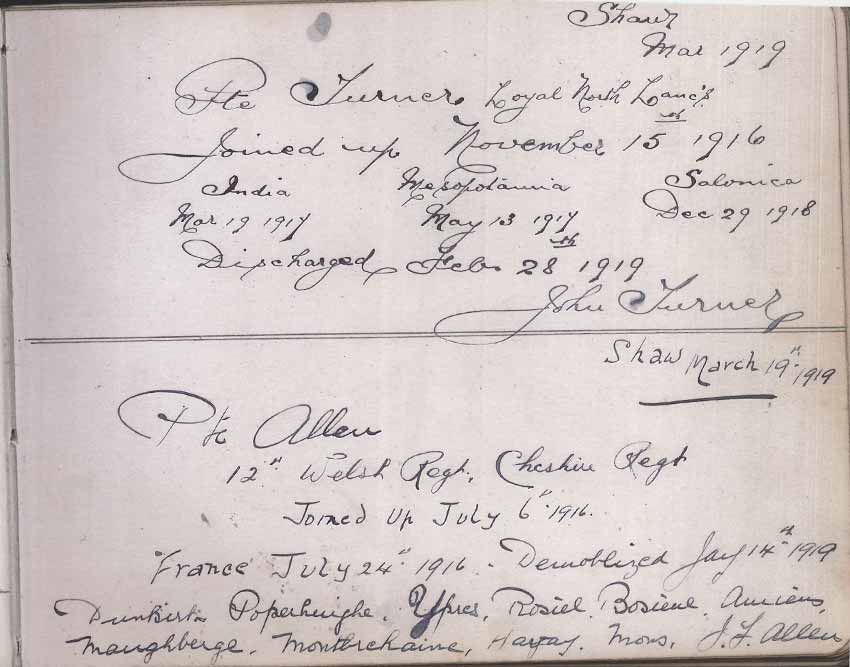 Shaw
Mar 1919
Pte Turner Loyal North Lancs
Joined up November 15th 1916
India Mesopotamia Salonica
Mar 19 1917 May 13 1917 Dec 29 1918
Discharged Feb 28th 1919
John Turner
Shaw March 19th 1919
Pte Allen
12th Welsh Regt, Cheshire Regt
Joined Up July 6th 1916.
France July 24th 1916 - Demoblized Jay 14th 1919
Dunkirk Poperhinghe. Ypres, Rosiel. Bosiene. Amiens,
Maughberge. Montrechaine, Mons, J.F. Allen